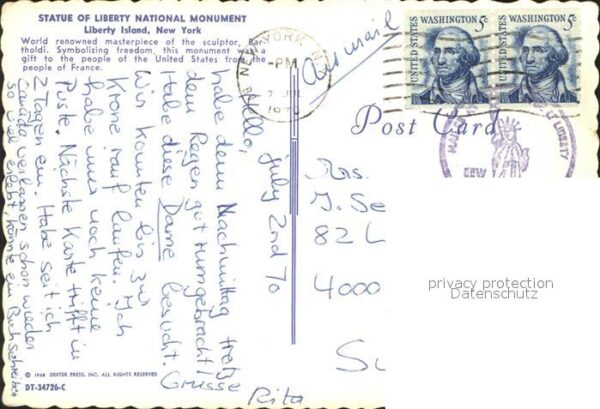 STATUE OF LIBERTY NATIONAL MONUMENT
Liberty Island, New York
World renowned masterpiece of the sculptor, Bar-
tholdi. Symbolizing freedom, this monument was a
gift to the people of the United States from the
people of France.
July 2nd 70
Hello,
habe den Nachmittag trotz
dem Regen gut rumgebracht!
Habe diese Dame besucht.
Wir konnten bis zur
Krone rauf laufen. Ich
habe immer noch keine
Poste. Nächste Karte trifft in
2 Tagen ein. Habe seit ich
Canada verlassen schon wieder
so viel erlebt, könnte ein Buch schreiben
Grüsse
Rita
© 1968 DEXTER PRESS, INC. ALL RIGHTS RESERVED
DT-34726-C
Air mail
NEW YORK, N.Y.
PM
2 JUL
UNITED STATES
WASHINGTON 5c
UNITED STATES
WASHINGTON 5c
Post Card
OF LIBERTY
Mrs.
J. Se
82 L
4000
privacy protection
Datenschutz